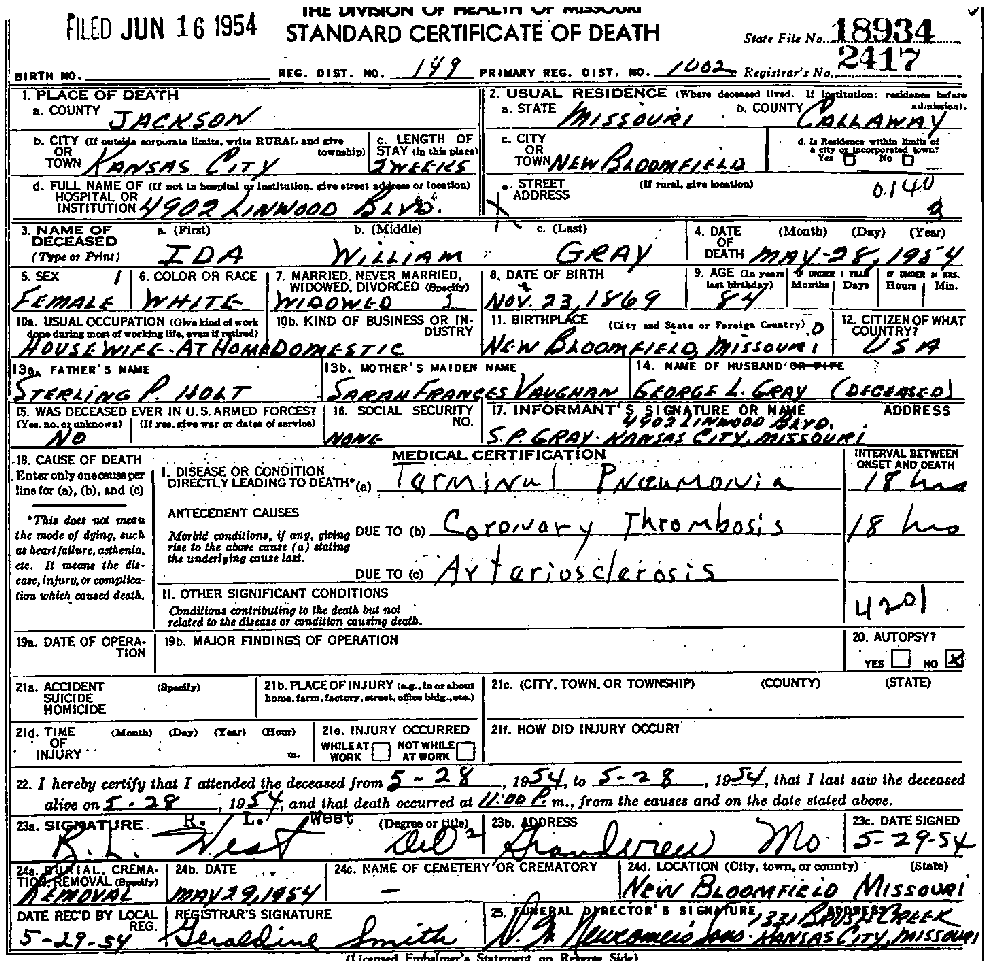 THE DIVISION OF HEALTH OF MISSOURI
FILED JUN 16 1954 STANDARD CERTIFICATE OF DEATH State File No. 18934
BIRTH NO. REG. DIST. NO. 149 PRIMARY REG. DIST. NO. 1002 Registrar's No. 2417
1. PLACE OF DEATH
a. COUNTY JACKSON
2. USUAL RESIDENCE (Where deceased lived. If institution: residence before admission).
a. STATE MISSOURI b. COUNTY CALLAWAY
b. CITY (If outside corporate limits, write RURAL and give township) OR TOWN KANSAS CITY
c. LENGTH OF STAY (in this place) 2 WEEKS
c. CITY OR TOWN NEW BLOOMFIELD
d. Is Residence within limits of a city or incorporated town? Yes No
d. FULL NAME OF (If not in hospital or institution, give street address or location) HOSPITAL OR INSTITUTION 4902 LINWOOD BLVD.
e. STREET ADDRESS (If rural, give location) 0140
3. NAME OF DECEASED (Type or Print) a. (First) IDA b. (Middle) WILLIAM c. (Last) GRAY
4. DATE OF DEATH (Month) (Day) (Year) MAY-28, 1954
5. SEX FEMALE 1
6. COLOR OR RACE WHITE
7. MARRIED, NEVER MARRIED, WIDOWED, DIVORCED (Specify) WIDOWED
8. DATE OF BIRTH NOV. 23, 1869
9. AGE (In years last birthday) 84 IF UNDER 1 YEAR Months Days IF UNDER 24 HRS. Hours Min.
10a. USUAL OCCUPATION (Give kind of work done during most of working life, even if retired) HOUSEWIFE-AT HOME
10b. KIND OF BUSINESS OR INDUSTRY DOMESTIC
11. BIRTHPLACE (City and State or Foreign Country) NEW BLOOMFIELD, MISSOURI
12. CITIZEN OF WHAT COUNTRY? USA
13a. FATHER'S NAME STERLING P. HOLT
13b. MOTHER'S MAIDEN NAME SARAH FRANCES VAUGHAN
14. NAME OF HUSBAND OR WIFE GEORGE L. GRAY (DECEASED)
15. WAS DECEASED EVER IN U.S. ARMED FORCES? (Yes, no, or unknown) (If yes, give war or dates of service) NO
16. SOCIAL SECURITY NO. NONE
17. INFORMANT'S SIGNATURE OR NAME ADDRESS
4902 LINWOOD BLVD.
S.P. GRAY-KANSAS CITY, MISSOURI
18. CAUSE OF DEATH
Enter only one cause per line for (a), (b), and (c)
*This does not mean the mode of dying, such as heart failure, asthenia, etc. It means the disease, injury, or complication which caused death.
MEDICAL CERTIFICATION
INTERVAL BETWEEN ONSET AND DEATH
I. DISEASE OR CONDITION DIRECTLY LEADING TO DEATH* (a) Terminal Pneumonia 18 hrs
ANTECEDENT CAUSES
Morbid conditions, if any, giving rise to the above cause (a) stating the underlying cause last.
DUE TO (b) Coronary Thrombosis 18 hrs
DUE TO (c) Arteriosclerosis
II. OTHER SIGNIFICANT CONDITIONS
Conditions contributing to the death but not related to the disease or condition causing death.
4201
19a. DATE OF OPERATION
19b. MAJOR FINDINGS OF OPERATION
20. AUTOPSY? YES NO X
21a. ACCIDENT SUICIDE HOMICIDE (Specify)
21b. PLACE OF INJURY (e.g., in or about home, farm, factory, street, office bldg., etc.)
21c. (CITY, TOWN, OR TOWNSHIP) (COUNTY) (STATE)
21d. TIME OF INJURY (Month) (Day) (Year) (Hour) m.
21e. INJURY OCCURRED WHILE AT WORK NOT WHILE AT WORK
21f. HOW DID INJURY OCCUR?
22. I hereby certify that I attended the deceased from 5-28, 1954, to 5-28, 1954, that I last saw the deceased
alive on 5-28, 1954, and that death occurred at 11:00 P. m., from the causes and on the date stated above.
23a. SIGNATURE R. L. West (Degree or title)
R.L. West
23b. ADDRESS Grandview Mo
23c. DATE SIGNED 5-29-54
24a. BURIAL, CREMATION, REMOVAL (Specify) REMOVAL
24b. DATE MAY 29, 1954
24c. NAME OF CEMETERY OR CREMATORY -
24d. LOCATION (City, town, or county) (State) NEW BLOOMFIELD MISSOURI
DATE REC'D BY LOCAL REG. 5-29-54
REGISTRAR'S SIGNATURE Geraldine Smith
25. FUNERAL DIRECTOR'S SIGNATURE ADDRESS
1331 BRUSH CREEK
D.W. Newcomer's Sons-KANSAS CITY, MISSOURI
(Licensed Embalmer's Statement on Reverse Side)